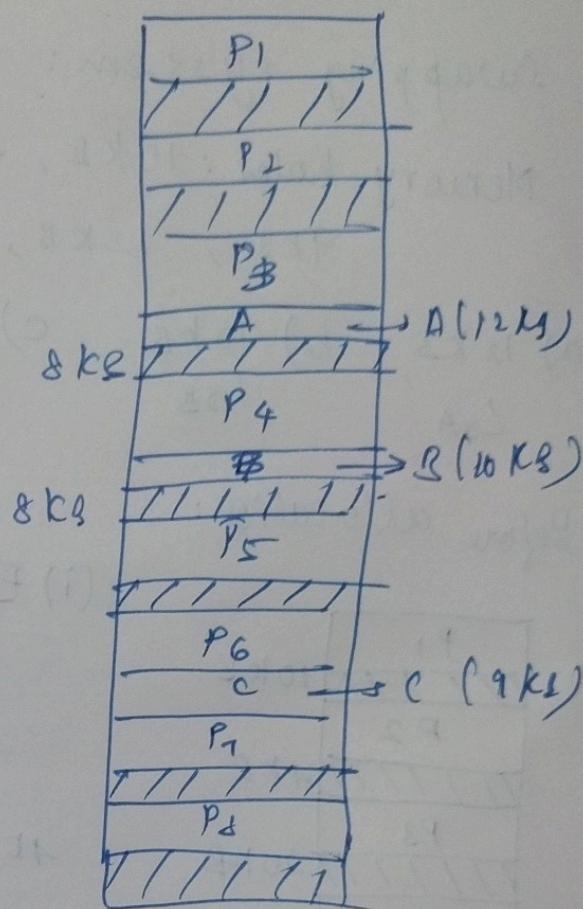 P1
P2
P3
A → A (12 KB)
8 KB
P4
B → B (10 KB)
8 KB
P5
P6
C → C (9 KB)
P7
P8